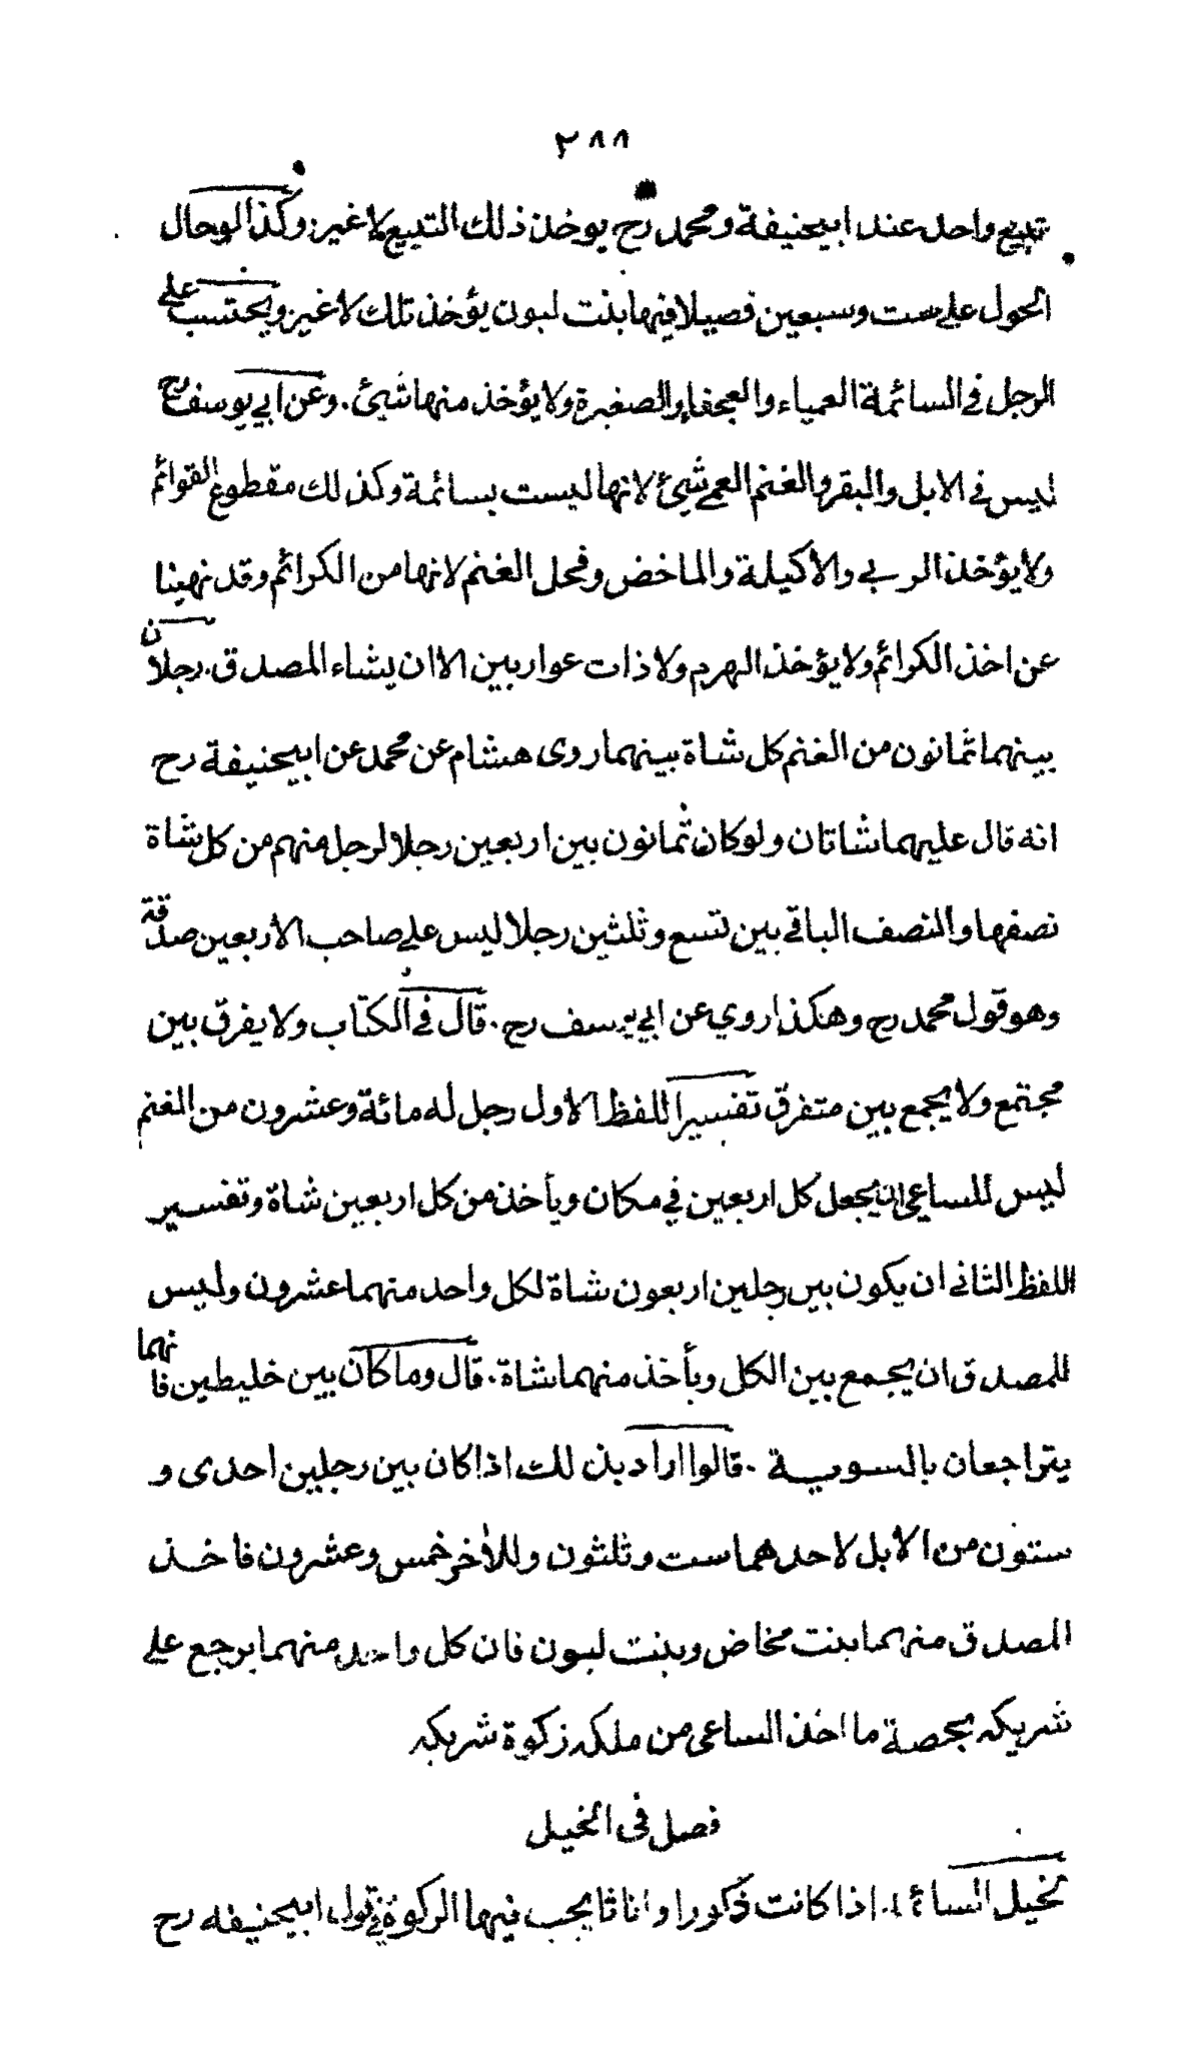 ٢٨٨
تبيع واحد عند ابيحنيفة ومحمد رح يوخذ ذلك التبيع لا غير وكذا لوحال
الحول على ست وسبعين فصيلا فيها بنت لبون يؤخذ تلك لا غير ويحتسب على
الرجل في السائمة العمياء والعجفاء والصغيرة ولا يؤخذ منها شئ. وعن ابي يوسف رح
ليس في الابل والبقر والغنم العمى شئ لانها ليست بسائمة وكذلك مقطوع القوائم
ولا يؤخذ الربى والاكيلة والماخض وفحل الغنم لانها من الكرائم وقد نهينا
عن اخذ الكرائم ولا يؤخذ الهرم ولا ذات عوار بين الا ان يشاء المصدق. رجلان
بينهما ثمانون من الغنم كل شاة بينهما روى هشام عن محمد عن ابيحنيفة رح
انه قال عليهما شاتان ولو كان ثمانون بين اربعين رجلا لرجل منهم من كل شاة
نصفها والنصف الباقي بين تسع وثلثين رجلا ليس على صاحب الاربعين صدقة
وهو قول محمد رح وهكذا روي عن ابي يوسف رح. قال في الكتاب ولا يفرق بين
مجتمع ولا يجمع بين متفرق تفسير اللفظ الاول رجل له مائة وعشرون من الغنم
ليس للساعي ان يجعل كل اربعين في مكان ويأخذ من كل اربعين شاة وتفسير
اللفظ الثاني ان يكون بين رجلين اربعون شاة لكل واحد منهما عشرون وليس
للمصدق ان يجمع بين الكل ويأخذ منهما شاة. قال وما كان بين خليطين فانهما
يتراجعان بالسوية. قالوا اراد بذلك اذا كان بين رجلين احدى و
ستون من الابل لاحدهما ست وثلثون وللآخر خمس وعشرون فاخذ
المصدق منهما بنت مخاض وبنت لبون فان كل واحد منهما يرجع على
شريكه بحصة ما اخذ الساعي من ملكه زكوة شريكه
فصل في الخيل
لخيل السائمة. اذا كانت ذكورا واناثا يجب فيها الزكوة في قول ابيحنيفه رح